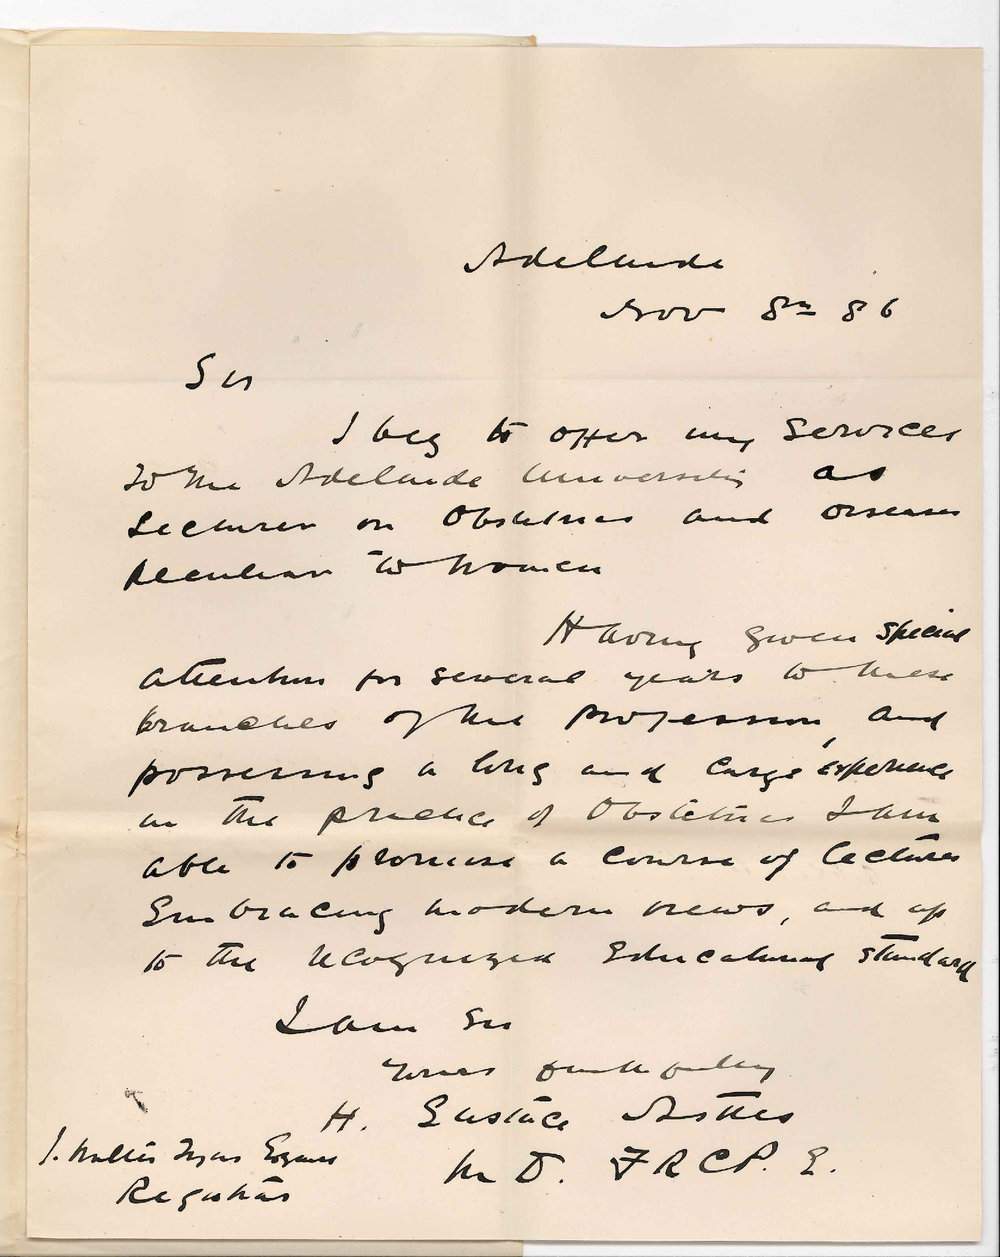 Adelaide
Nov 8th 86
Sir
I beg to offer my services
to the Adelaide University as
Lecturer on Obstetrics and Diseases
peculiar to Women
Having given special
attention for several years to these
branches of the profession, and
possessing a long and large experience
in the practice of Obstetrics I am
able to promise a course of lectures
Embracing modern views, and up
to the recognized Educational standard
I am Sir
Yours faithfully
H. Eustace Astles
M D. F R C P. E.
J. Walter Tyas Esquire
Registrar